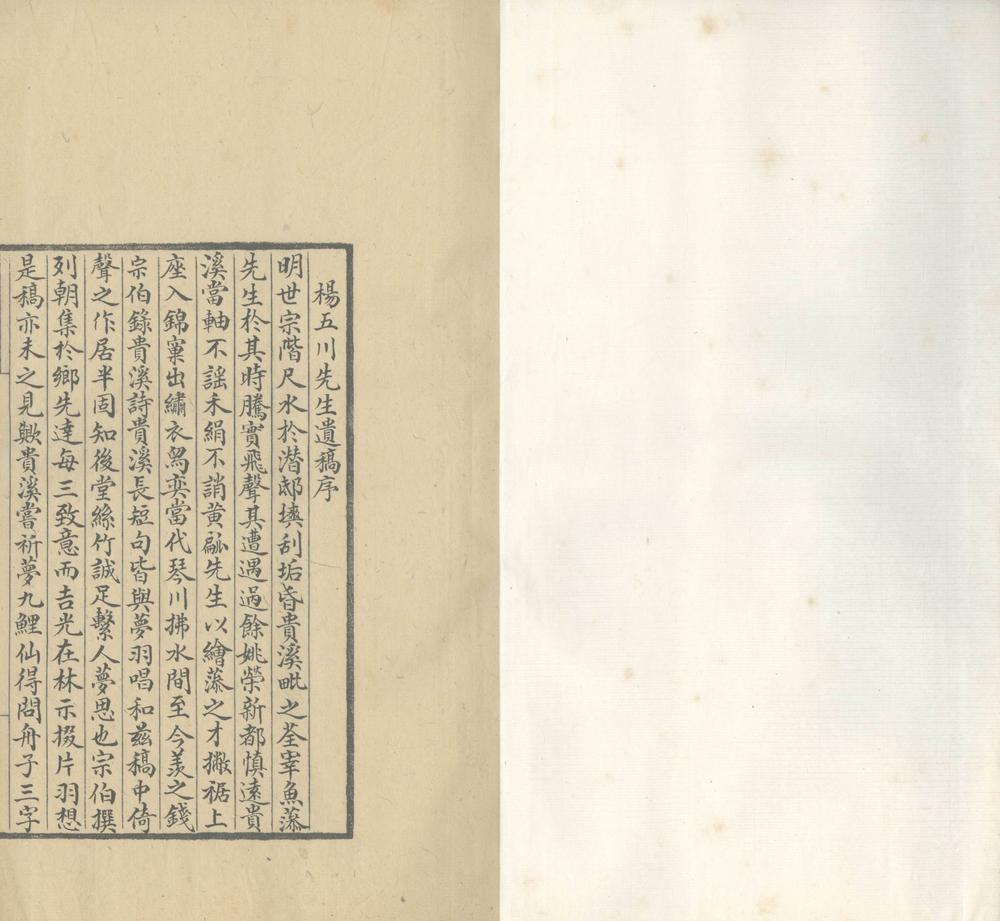 楊五川先生遺稿序
明世宗階尺水於潛邸擙刮垢昏貴溪毗之荃宰魚藻
先生於其時騰實飛聲其遭遇過餘姚榮新都慎遠貴
溪當軸不謡禾絹不誚黄翮先生以繪藻之才撇裾上
座入錦窠出繡衣舄奕當代琴川拂水間至今羡之錢
宗伯錄貴溪詩貴溪長短句皆與夢羽唱和茲稿中倚
聲之作居半固知後堂絲竹誠足繫人夢思也宗伯撰
列朝集於鄉先達每三致意而吉光在林示掇片羽想
是稿亦未之見歟貴溪嘗祈夢九鯉仙得問舟子三字